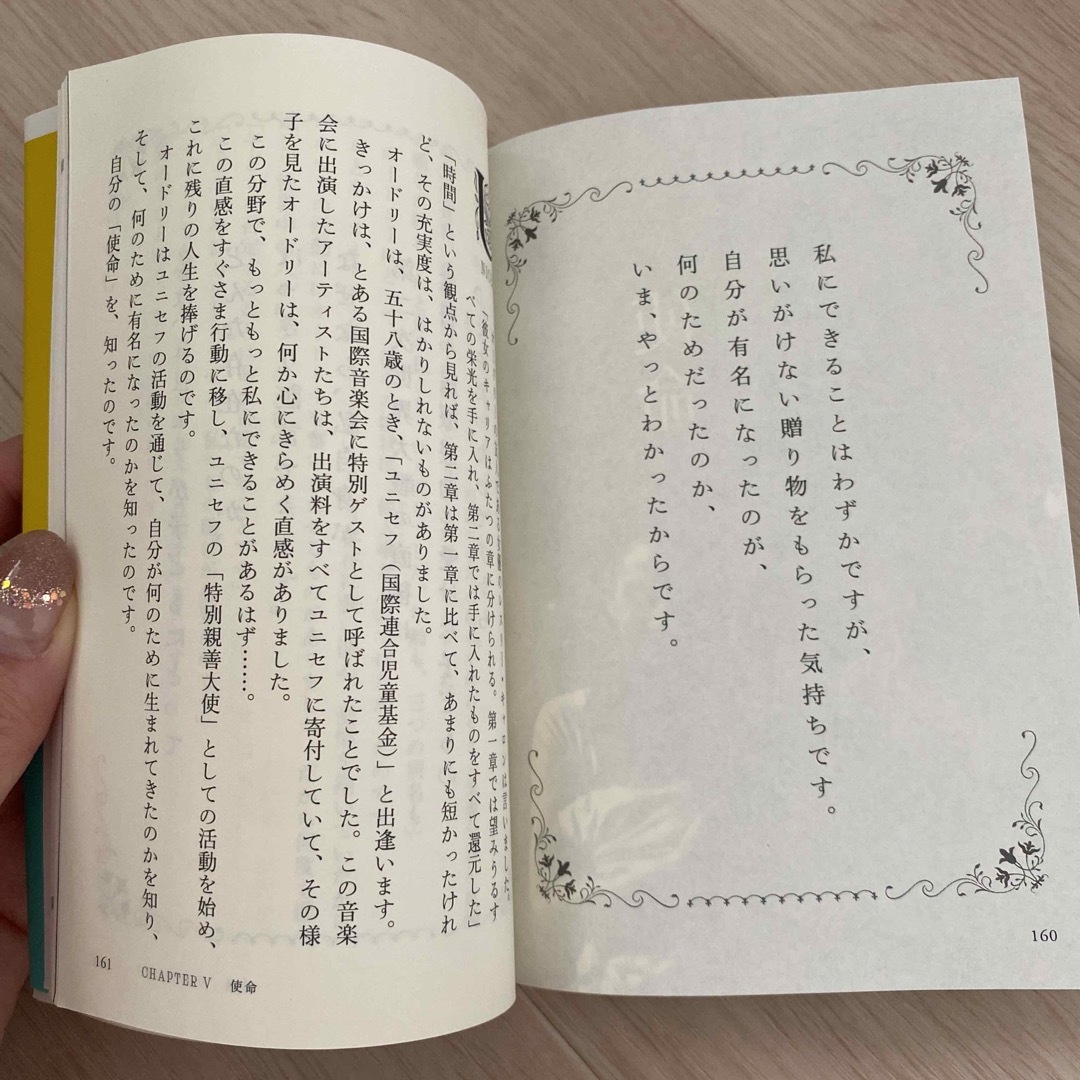 私にできることはわずかですが、
思いがけない贈り物をもらった気持ちです。
自分が有名になったのが、
何のためだったのか、
いま、やっとわかったからです。
160
は言いました。
「彼女のキャリアはふたつの章に分けられる。第一章では望みうるす
べての栄光を手に入れ、第二章では手に入れたものをすべて還元した」
「時間」という観点から見れば、第二章は第一章に比べて、あまりにも短かったけれ
ど、その充実度は、はかりしれないものがありました。
オードリーは、五十八歳のとき、「ユニセフ（国際連合児童基金）」と出逢います。
きっかけは、とある国際音楽会に特別ゲストとして呼ばれたことでした。この音楽
会に出演したアーティストたちは、出演料をすべてユニセフに寄付していて、その様
子を見たオードリーは、何か心にきらめく直感がありました。
この分野で、もっともっと私にできることがあるはず……。
この直感をすぐさま行動に移し、ユニセフの「特別親善大使」としての活動を始め、
これに残りの人生を捧げるのです。
オードリーはユニセフの活動を通じて、自分が何のために生まれてきたのかを知り、
そして、何のために有名になったのかを知ったのです。
自分の「使命」を、知ったのです。
161
CHAPTER V 使命